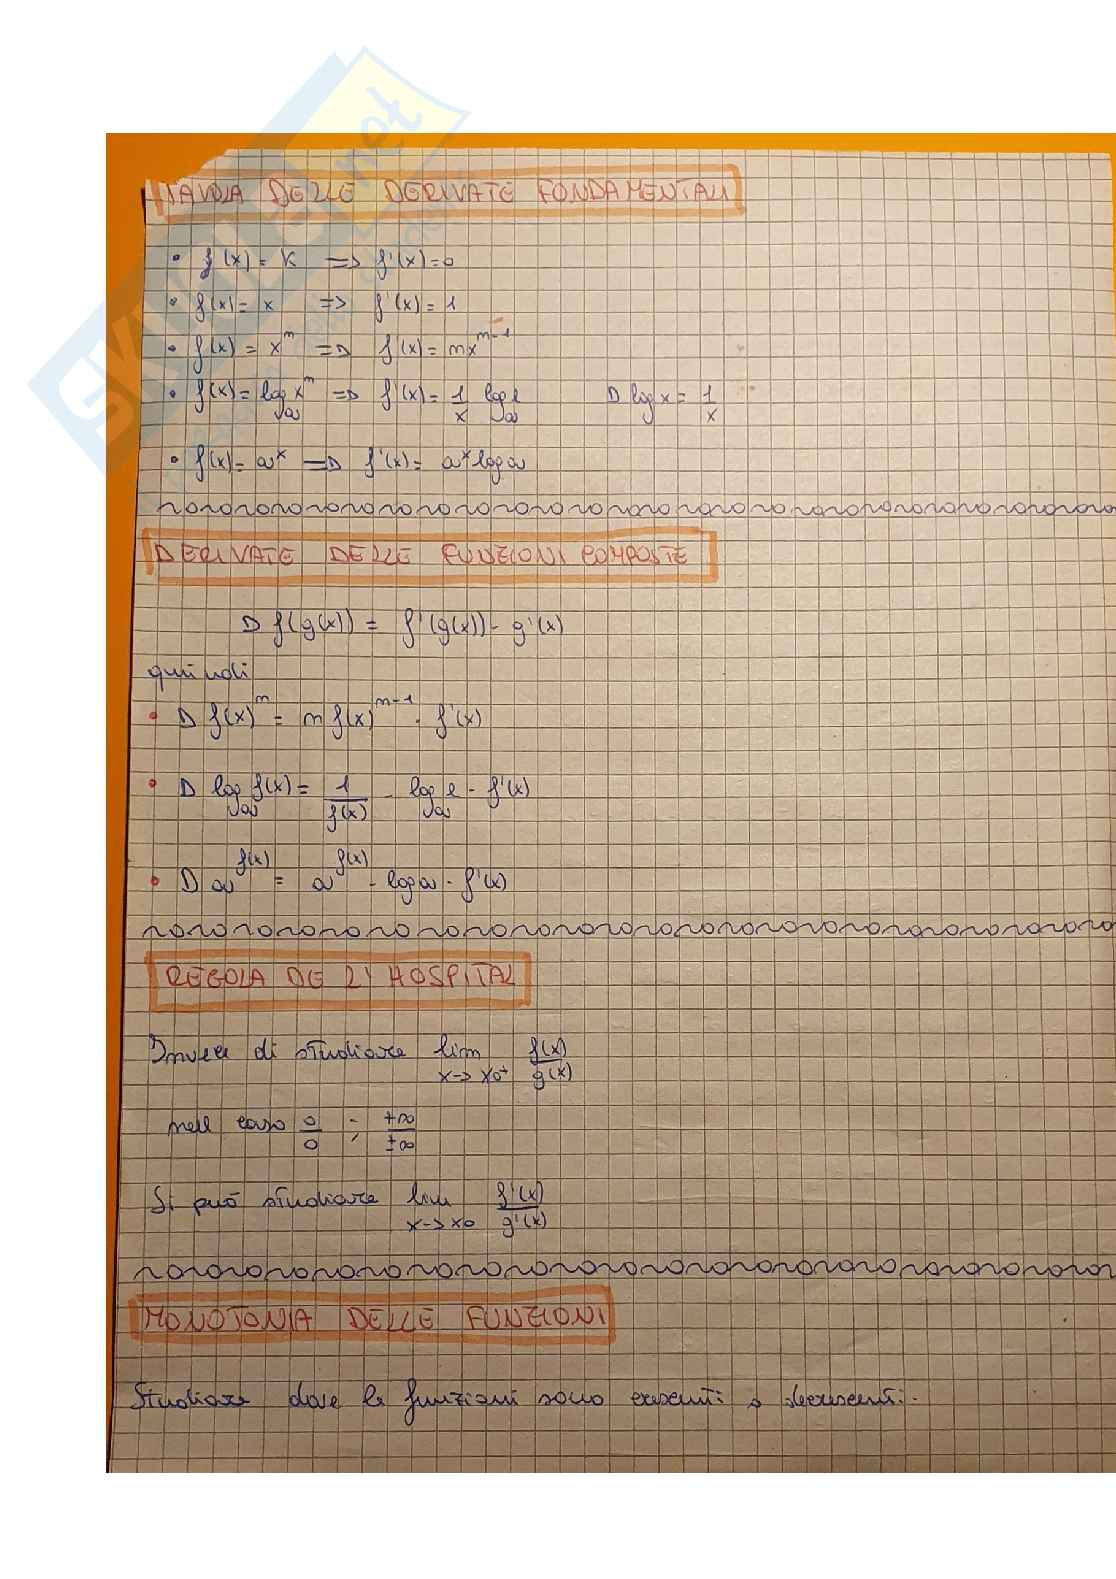 TAVOLA DELLE DERIVATE FONDAMENTALI
• f(x) = K => f'(x) = 0
• f(x) = x => f'(x) = 1
• f(x) = x^n => f'(x) = nx^{n-1}
• f(x) = log_a x^n => f'(x) = 1/x log_a e    D log x = 1/x
• f(x) = a^x => f'(x) = a^x log a
DERIVATE DELLE FUNZIONI COMPOSTE
D f(g(x)) = f'(g(x)) · g'(x)
quindi
• D f(x)^n = n f(x)^{n-1} · f'(x)
• D log_a f(x) = 1/f(x) · log_a e · f'(x)
• D a^{f(x)} = a^{f(x)} · log a · f'(x)
REGOLA DE L'HOSPITAL
Invece di studiare lim x->x0+ f(x)/g(x)
nell caso 0/0 ; +∞/±∞
Si può studiare lim x->x0 f'(x)/g'(x)
MONOTONIA DELLE FUNZIONI
Studiare dove le funzioni sono crescenti o decrescenti.
SKUOLA.net